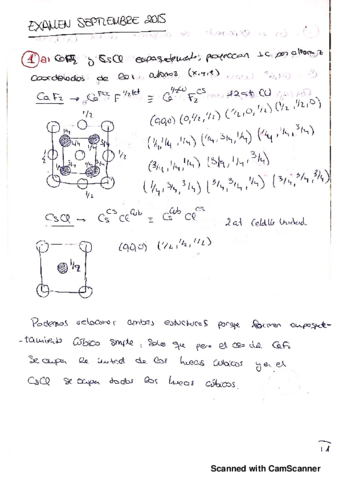 EXAMEN SEPTIEMBRE 2015
1 a) CaF₂ y CsCl empaquetamiento, proyección ⊥c, posiciones y
coordenadas de los átomos (x,y,z)
CaF₂ → Ca F ≡ Ca F₂ 12 at CU
1/2
(0,0,0) (0,1/2,1/2) (1/2,0,1/2) (1/2,1/2,0)
(1/4,1/4,1/4) (1/4,3/4,1/4) (1/4,1/4,3/4)
(3/4,1/4,1/4) (3/4,1/4,3/4)
(1/4,3/4,3/4) (3/4,3/4,1/4) (3/4,3/4,3/4)
1/2
1/2
CsCl → Cs Cl ≡ Cs Cl 2 at celda unidad
(0,0,0) (1/2,1/2,1/2)
1/2
Podemos relacionar ambas estructuras porque forman empaque-
-tamiento cúbico simple, solo que para el caso de CaF₂
se ocupa la mitad de los huecos cúbicos y en el
CsCl se ocupan todos los huecos cúbicos.
Scanned with CamScanner